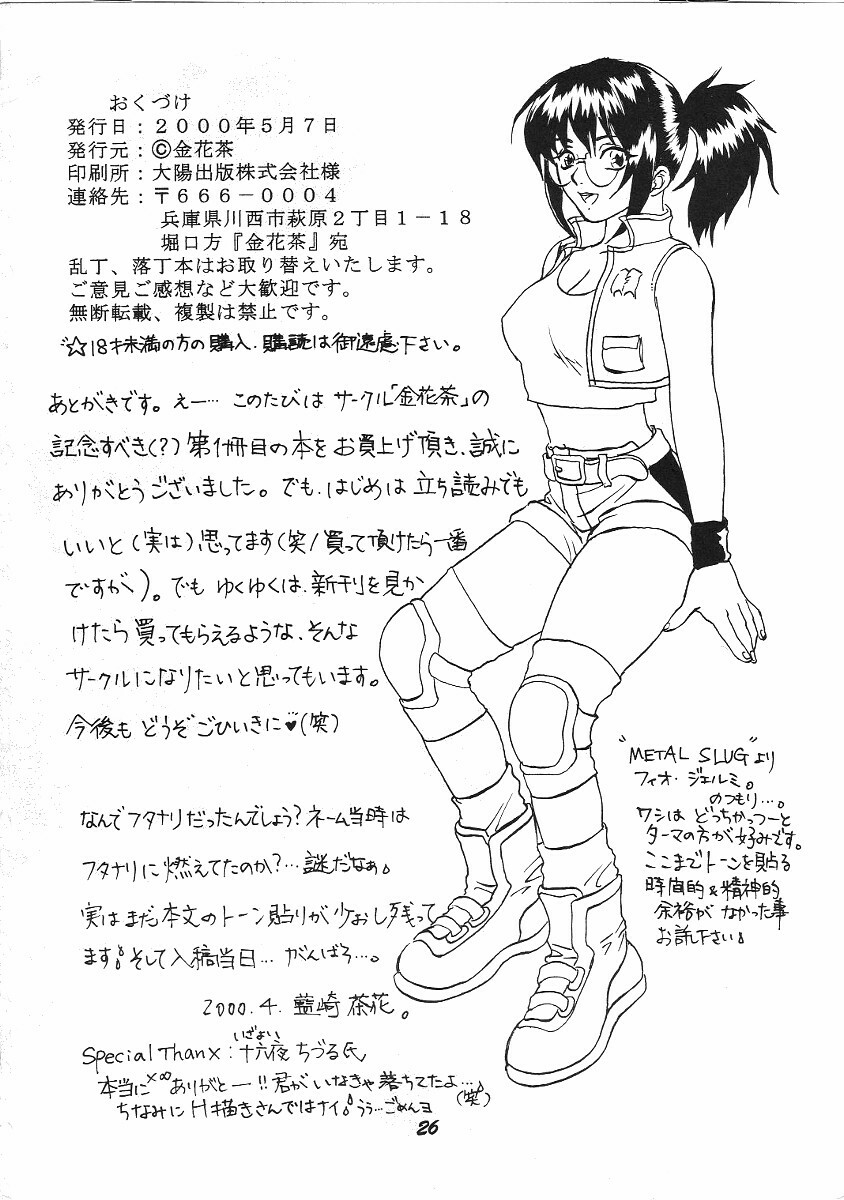 おくづけ
発行日：２０００年５月７日
発行元：©金花茶
印刷所：大陽出版株式会社様
連絡先：〒６６６－０００４
兵庫県川西市萩原２丁目１－１８
堀口方『金花茶』宛
乱丁、落丁本はお取り替えいたします。
ご意見ご感想など大歓迎です。
無断転載、複製は禁止です。
☆18才未満の方の購入・購読は御遠慮下さい。
あとがきです。えー…このたびは サークル「金花茶」の
記念すべき(?)第1冊目の本をお買上げ頂き、誠に
ありがとうございました。でも、はじめは立ち読みでも
いいと(実は)思ってます(笑/買って頂けたら一番
ですが)。でも ゆくゆくは、新刊を見か
けたら買ってもらえるような、そんな
サークルになりたいと思ってもいます。
今後も どうぞごひいきに♥(笑)
なんでフタナリだったんでしょう?ネーム当時は
フタナリに燃えてたのか?…謎だなぁ。
実はまだ本文のトーン貼りが少おし残って
ます。そして入稿当日…がんばろ…。
2000.4. 藍崎 茶花。
いざよい
Special Thanx：十六夜 ちづる氏
本当に×∞ありがとー!!君がいなきゃ落ちてたよ…。
(笑)
ちなみに H描きさんではナイ。うぅ…ごめんヨ
"METAL SLUG"より
フィオ・ジェルミ。
のつもり…。
ワシは どっちかっつーと
ターマの方が好みです。
ここまでトーンを貼る
時間的&精神的
余裕が なかった事
お許し下さい。
26